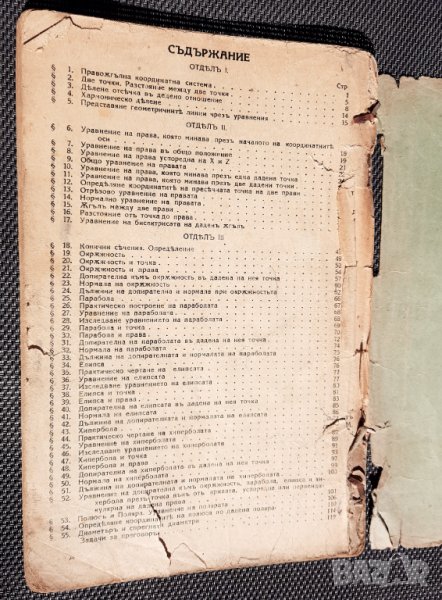 СЪДЪРЖАНИЕ
ОТДѢЛЪ I. Стр
§ 1. Правожгълна координатна система 1
§ 2. Две точки. Разстояние между две точки 5
§ 3. Дѣлене отсѣчка въ дадено отношение 8
§ 4. Хармоническо дѣлене 14
§ 5. Представяне геометричнитѣ линии чрезъ уравнения 15
ОТДѢЛЪ II.
§ 6. Уравнение на права, която минава презъ началото на координатнитѣ
оси
§ 7. Уравнение на права въ общо положение 19
§ 8. Уравнение на права успоредна на X и Z
§ 9. Общо уравнение на правата
§ 10. Уравнение на права, която минава презъ една дадена точка
§ 11. Уравнение на права, която минава презъ две дадени точки
§ 12. Опредѣляне координатитѣ на пресѣчната точка на две прави
§ 13. Отрѣзово уравнение на правата
§ 14. Нормално уравнение на правата
§ 15. Жгълъ между две прави
§ 16. Разстояние отъ точка до права
§ 17. Уравнение на бисектрисата на даденъ жгълъ
ОТДѢЛЪ III.
§ 18. Конични сѣчения. Опредѣление
§ 19. Окржжность
§ 20. Окржжность и точка
§ 21. Окржжность и права
§ 22. Допирателна къмъ окржжность въ дадена на нея точка
§ 23. Нормала на окржжность
§ 24. Дължини на допирателна и нормала при окржжностьта
§ 25. Парабола
§ 26. Практическо построение на параболата
§ 27. Уравнение на параболата
§ 28. Изследване уравнението на параболата
§ 29. Парабола и точка
§ 30. Парабола и права
§ 31. Допирателна на парабола въ дадена на нея точка
§ 32. Нормала на параболата
§ 33. Дължина на допирателната и нормалата на параболата
§ 34. Елипса
§ 35. Практическо чертане на елипсата
§ 36. Уравнение на елипсата
§ 37. Изследване уравнението на елипсата
§ 38. Елипса и точка
§ 39. Елипса и права
§ 40. Допирателна на елипсата въ дадена на нея точка
§ 41. Нормала на елипсата
§ 42. Дължини на допирателната и нормалата на елипсата
§ 43. Хипербола
§ 44. Практическо чертане на хиперболата
§ 45. Уравнение на хиперболата
§ 46. Изследване уравнението на хиперболата
§ 47. Хипербола и точка
§ 48. Хипербола и права
§ 49. Допирателна на хиперболата въ дадена на нея точка
§ 50. Нормала на хиперболата
§ 51. Дължини на допирателната и нормалата на хиперболата
§ 52. Уравнение на допирателна къмъ окржжность, парабола, елипса и хи-
пербола презъ точка отъ кривата, успоредна или перпенди-
кулярна на дадена права
§ 53. Полюсъ и Поляра. Уравнение на полярата
§ 54. Опредѣляне координатитѣ на полюса по дадена поляра
§ 55. Диаметъръ и спрегнати диаметри
Задачи за преговоръ 119
BAZAR